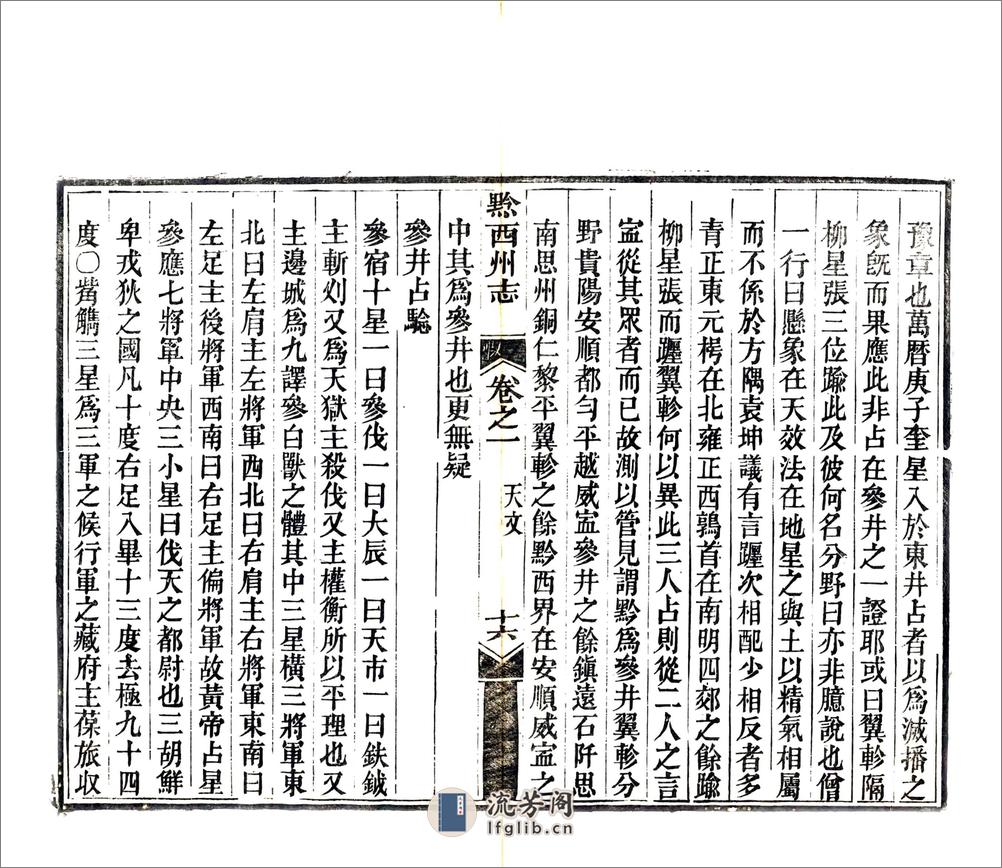 豫章也萬曆庚子奎星入於東井占者以爲滅播之
象旣而果應此非占在參井之一證耶或曰翼軫隔
柳星張三位踰此及彼何名分野曰亦非臆說也僧
一行曰懸象在天效法在地星之與土以精氣相屬
而不係於方隅袁坤議有言躔次相配少相反者多
靑正東元枵在北雍正西鶉首在南明四郊之餘踰
柳星張而躔翼軫何以異此三人占則從二人之言
寍從其眾者而已故測以管見謂黔爲參井翼軫分
野貴陽安順都勻平越威寍參井之餘鎭遠石阡思
南思州銅仁黎平翼軫之餘黔西界在安順威寍之
中其爲參井也更無疑
黔西州志
卷之一
天文
十六
參井占驗
參宿十星一曰參伐一曰大辰一曰天市一曰鈇鉞
主斬刈又爲天獄主殺伐又主權衡所以平理也又
主邊城爲九譯參白獸之體其中三星橫三將軍東
北曰左肩主左將軍西北曰右肩主右將軍東南曰
左足主後將軍西南曰右足主偏將軍故黃帝占星
參應七將軍中央三小星曰伐天之都尉也三胡鮮
卑戎狄之國凡十度右足入畢十三度去極九十四
度〇觜觿三星爲三軍之候行軍之藏府主葆旅收
流芳阁
lfglib.cn